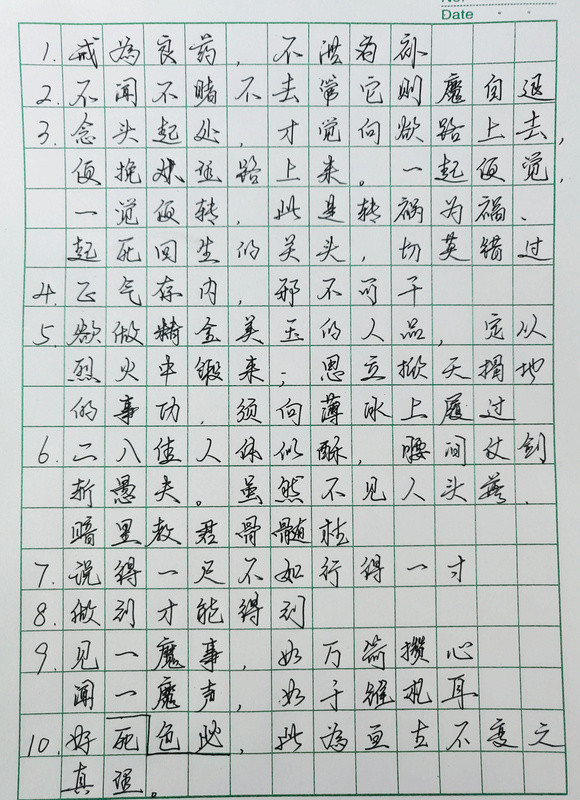 No:
Date
1. 戒为良药，不泄为补
2. 不闻不睹不去管它则魔自退
3. 念头起处，才觉向欲路上去，
便挽从理路上来。一起便觉，
一觉便转，此是转祸为福、
起死回生的关头，切莫错过
4. 正气存内，邪不可干
5. 欲做精金美玉的人品，定从
烈火中锻来；思立掀天揭地
的事功，须向薄冰上履过
6. 二八佳人体似酥，腰间仗剑
斩愚夫。虽然不见人头落，
暗里教君骨髓枯
7. 说得一尺不如行得一寸
8. 做到才能得到
9. 见一魔事，如万箭攒心
闻一魔声，如千锥札耳
10. 好色必死，此为亘古不变之
真理。